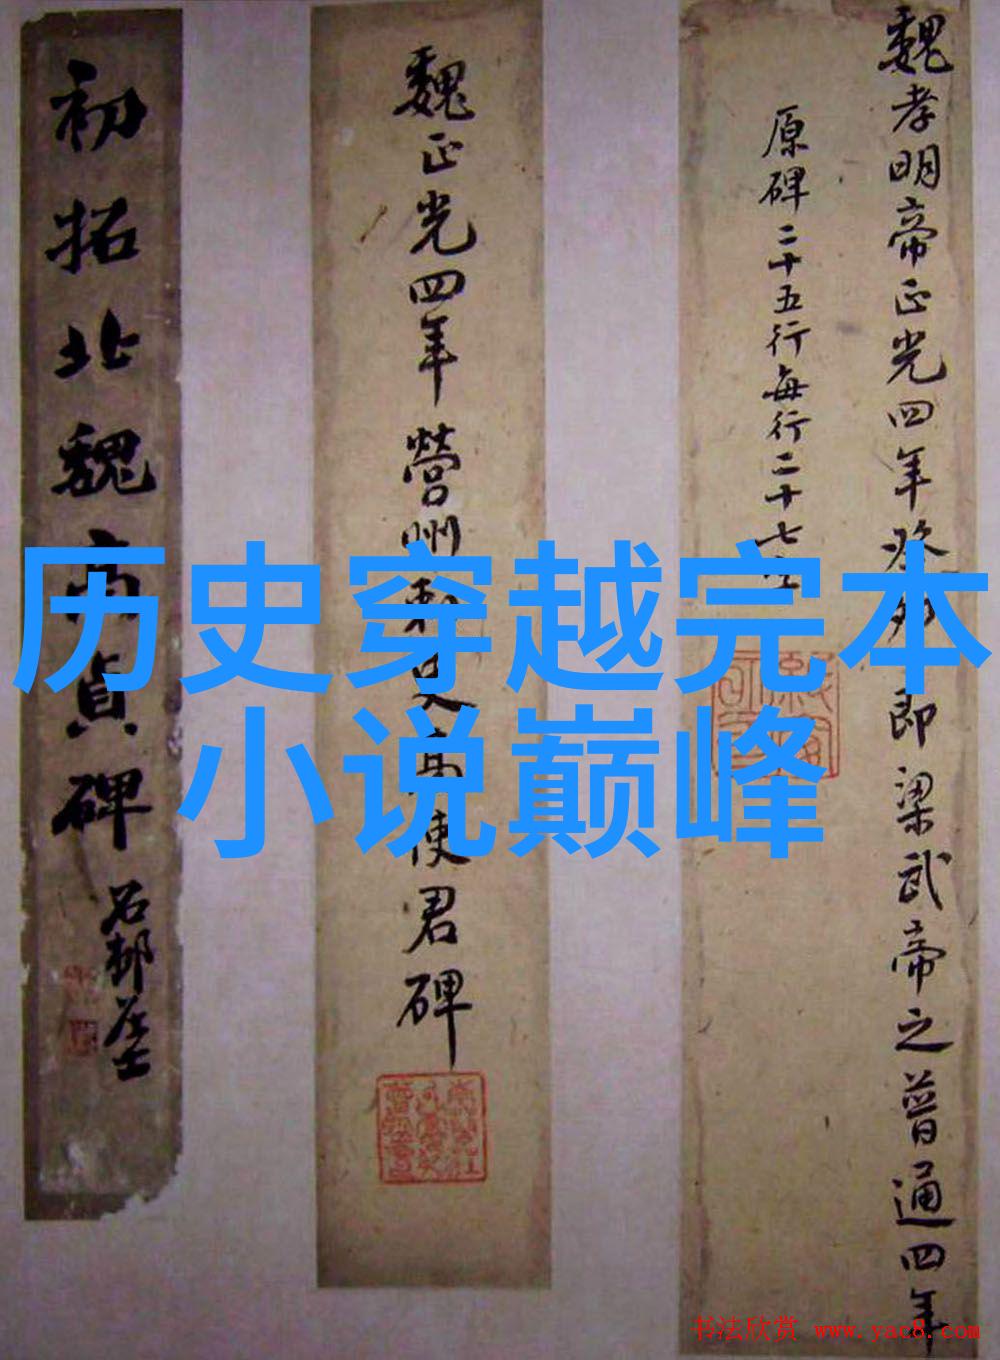 历史穿越完本
小说巅峰
魏孝明帝正光四年癸卯即梁武帝之普通四年
原碑二十五行每行二十七
魏正光四年營州刺史高使君碑
初拓北魏高貞碑
书法欣赏 www.yac8.com